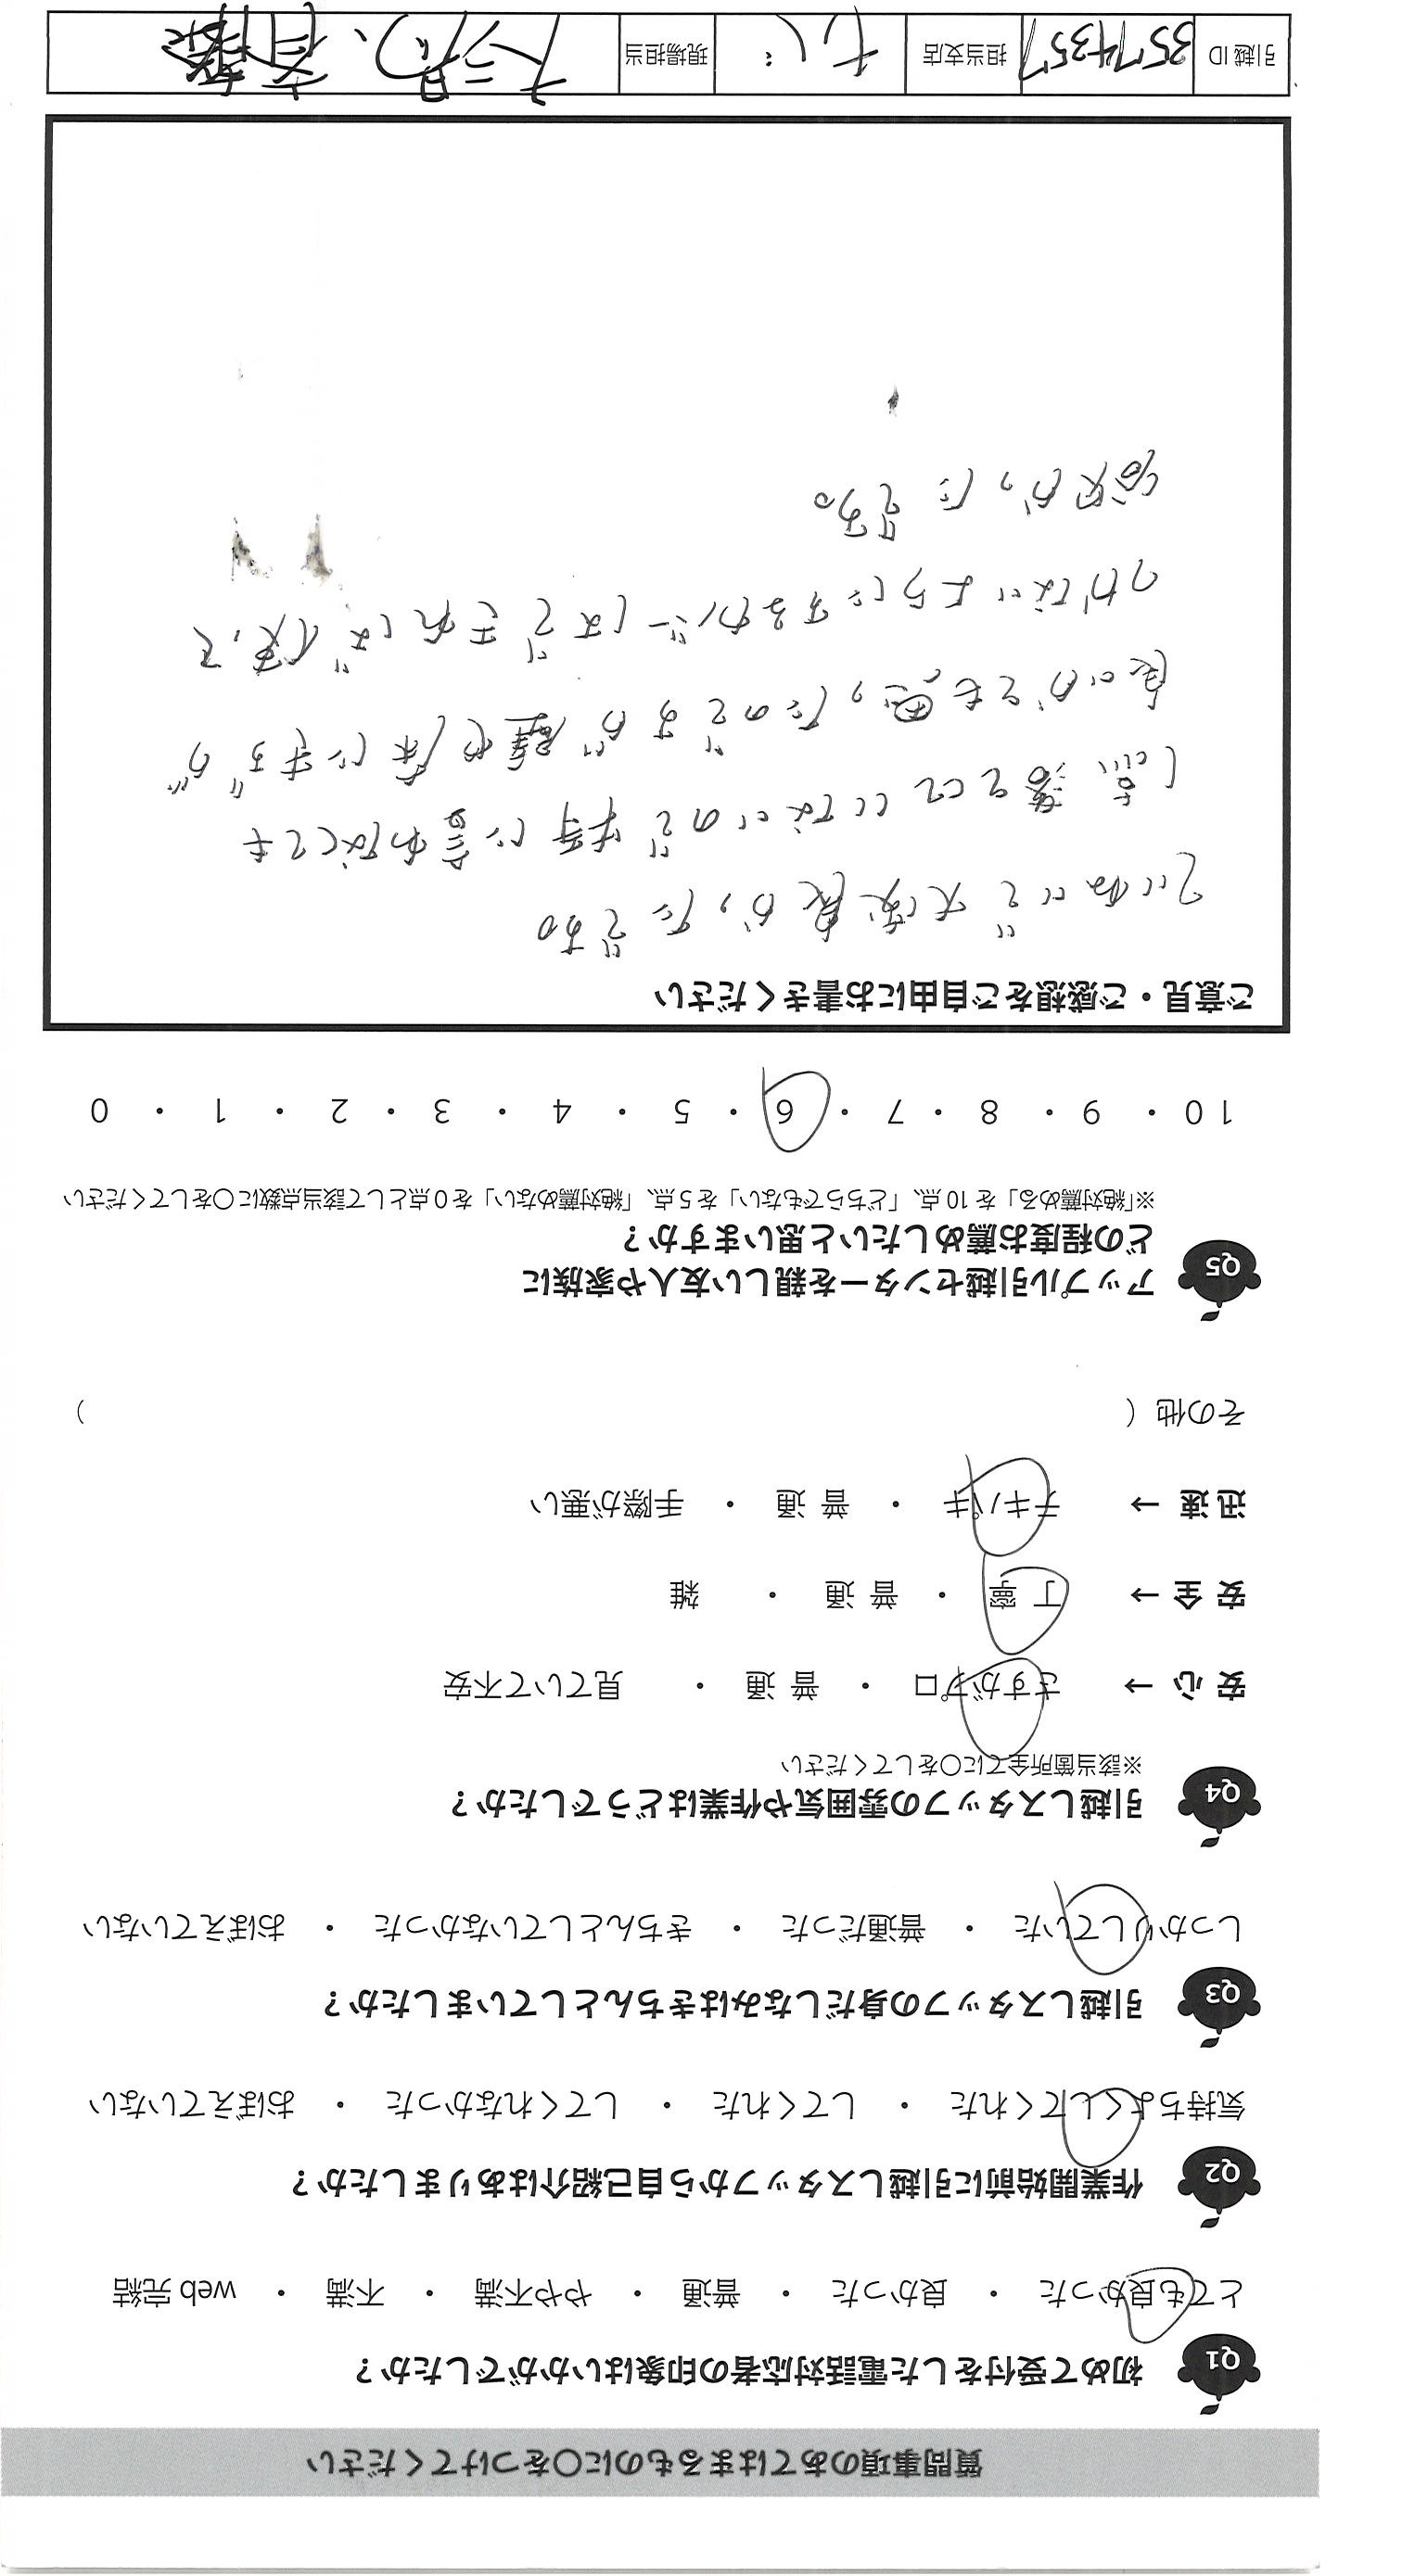 質問事項のあてはまるものに〇をつけてください
Q1 初めて受付をした電話対応者の印象はいかがでしたか？
とても良かった ・ 良かった ・ 普通 ・ やや不満 ・ 不満 ・ web 完結
Q2 作業開始前に引越しスタッフから自己紹介はありましたか？
気持ちよくしてくれた ・ してくれた ・ してくれなかった ・ おぼえていない
Q3 引越しスタッフの身だしなみはきちんとしていましたか？
しっかりしていた ・ 普通だった ・ きちんとしていなかった ・ おぼえていない
Q4 引越しスタッフの雰囲気や作業はどうでしたか？
※該当箇所全てに〇をしてください
安 心 → さすがプロ ・ 普 通 ・ 見ていて不安
安 全 → 丁 寧 ・ 普 通 ・ 雑
迅 速 → テキパキ ・ 普 通 ・ 手際が悪い
その他（ ）
Q5 アップル引越センターを親しい友人や家族に
どの程度お薦めしたいと思いますか？
※「絶対薦める」を 10 点、「どちらでもない」を 5 点、「絶対薦めない」を 0 点として該当点数に〇をしてください
10 ・ 9 ・ 8 ・ 7 ・ 6 ・ 5 ・ 4 ・ 3 ・ 2 ・ 1 ・ 0
ご意見・ご感想をご自由にお書きください
ていねいで大変良かったです。
していないので特に言わなくても
良いかとも思ったのですが壁や床にキズが
つかないようにするカバーはできれば使って
欲しかったです。
引越 ID 3574357 担当支店 現場担当